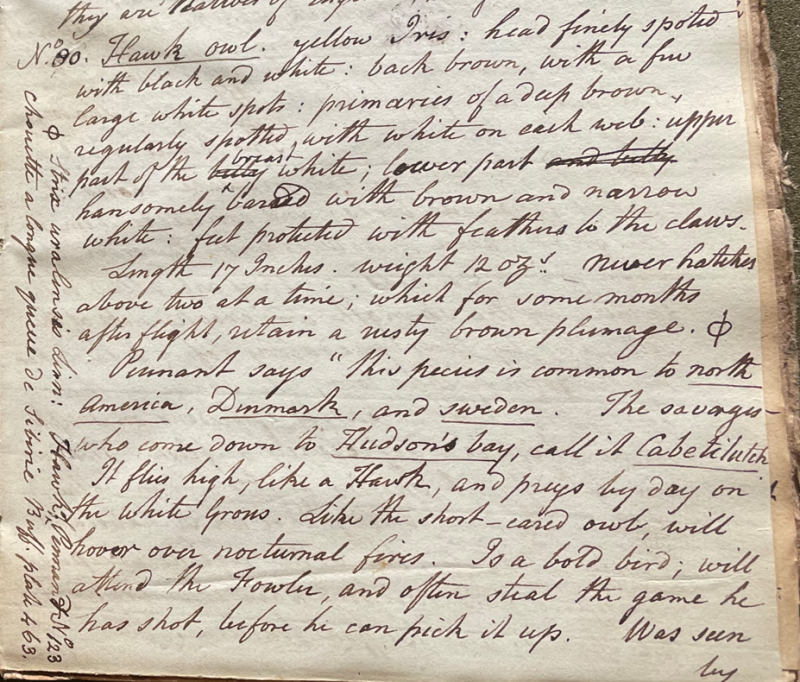 they are natives of
No. 80. Hawk owl. yellow Iris: head finely spoted
with black and white: back brown, with a few
large white spots: primaries of a deep brown,
regularly spotted, with white on each web: upper
part of the belly breast, white; lower part and belly
hansomely bared with brown and narrow
white: feet protected with feathers to the claws.
Length 17 Inches. weight 12 ozs. never hatches
above two at a time; which for some months
after flight, retain a rusty brown plumage. ϕ
Pennant says "this pecies is common to north
America, Denmark, and sweden. The savages
who come down to Hudson's bay, call it Cabetitutch
It flies high, like a Hawk, and preys by day on
the white Grous. Like the short-eared owl, will
hover over nocturnal fires. Is a bold bird; will
attend the Fowler, and often steal the game he
has shot, before he can pick it up. Was seen
by
ϕ Strix uralensis Linn: Hawk, Pennant No 123
chouette a longue queue de Siberie Buff. plate 463.